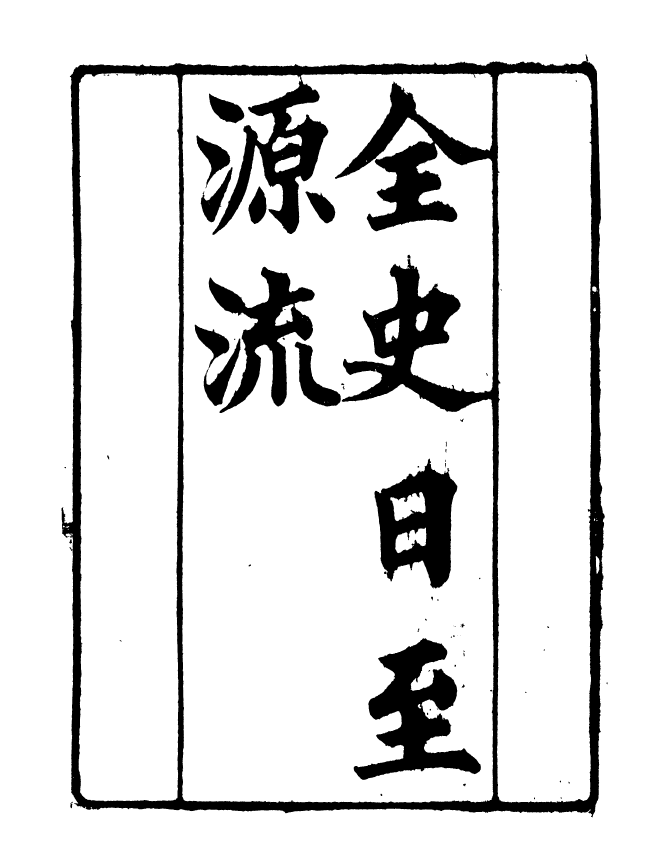 全史日至
源流